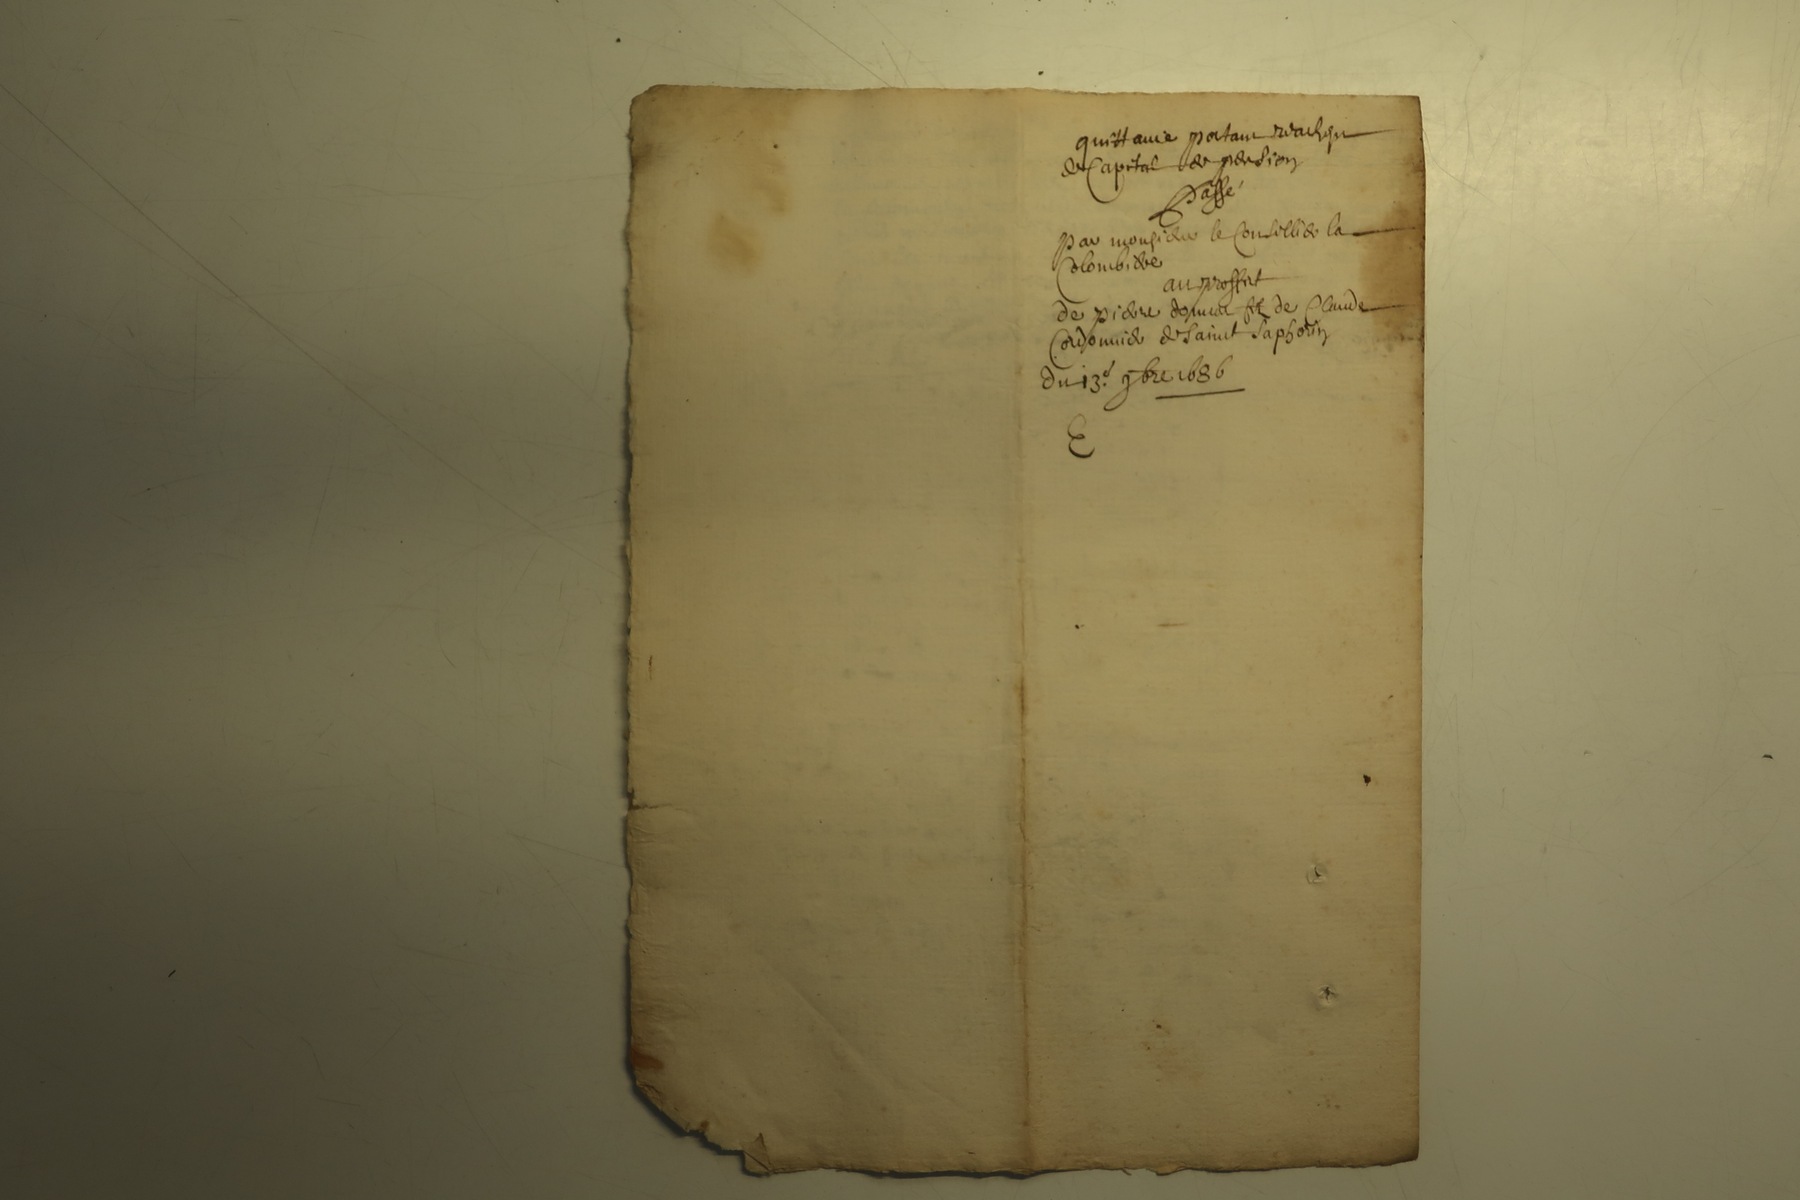 quittance portant reachept
de Capital de pension
Passé
par monsieur le Conseillier la
Colombiere
au proffict
de pierre donnat fz de Claude
Cordonnier de Saint Saphorin
du 13.e 9bre 1686
E